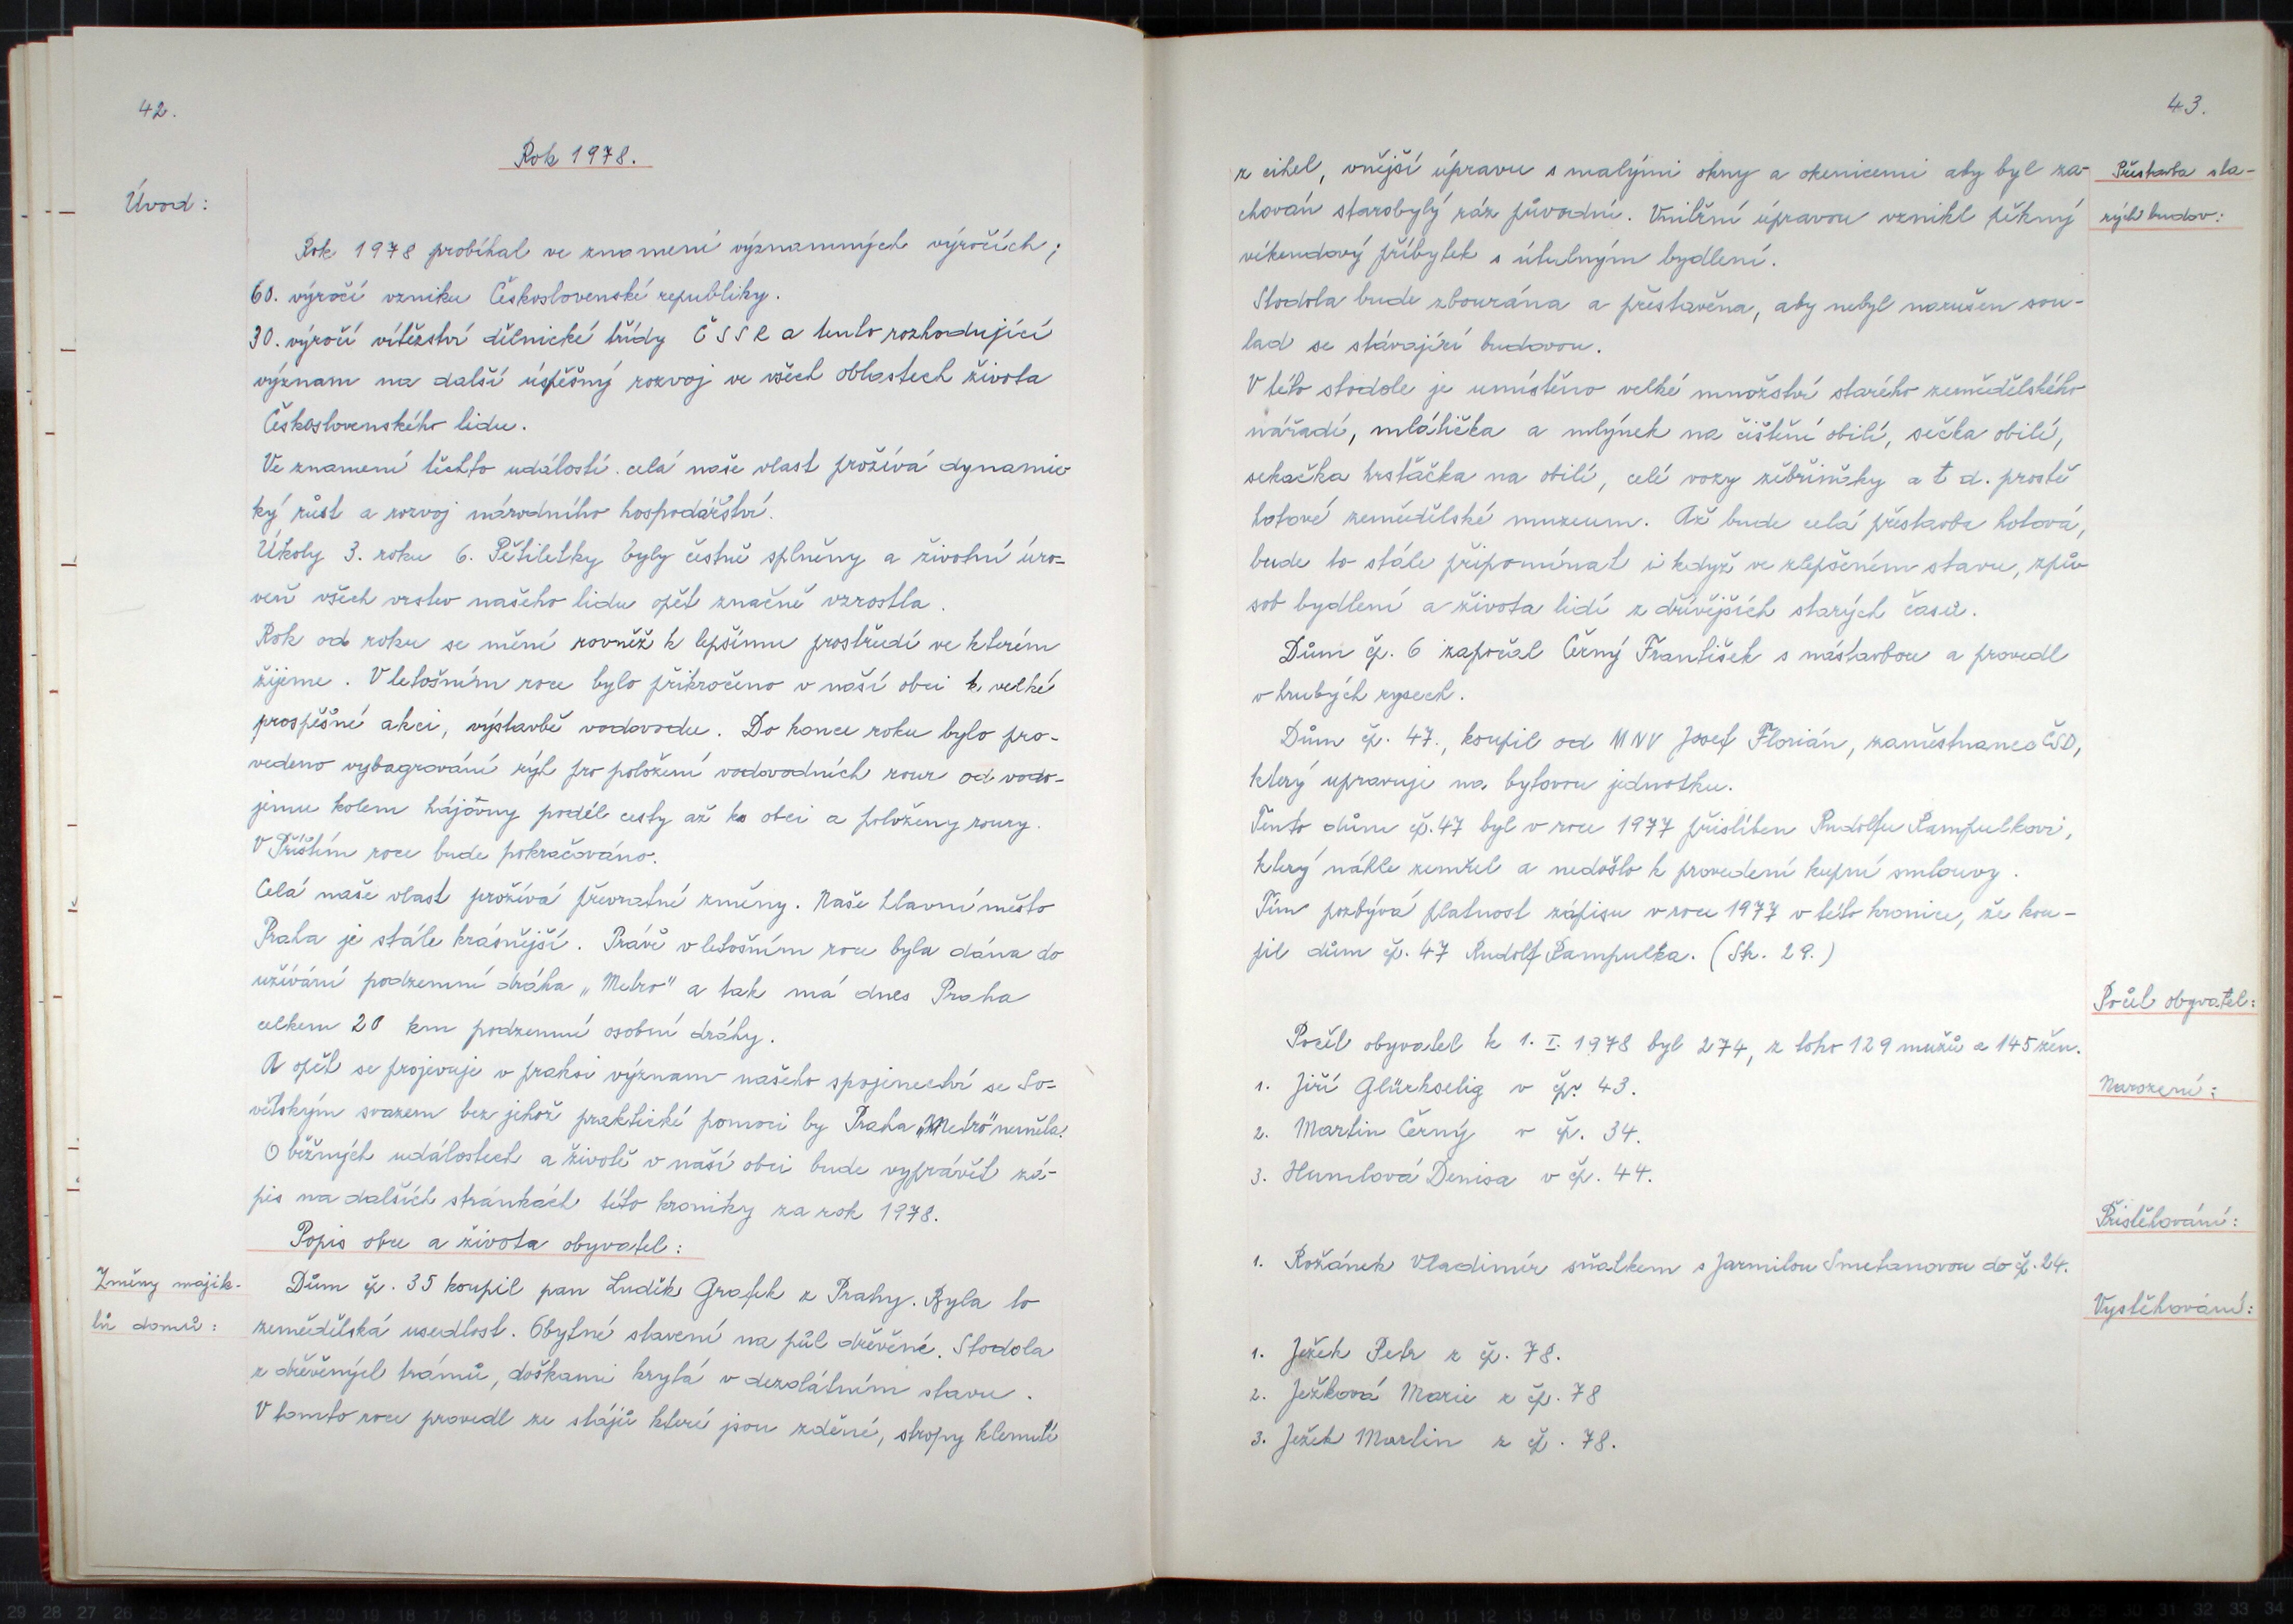 42.
Rok 1978.
Úvod:
Rok 1978 probíhal ve znamení významných výročích;
60. výročí vzniku Československé republiky.
30. výročí vítězství dělnické třídy ČSSR a tento rozhodující
význam na další úspěšný rozvoj ve všech oblastech života
Československého lidu.
Ve znamení těchto událostí celá naše vlast prožívá dynamic
ký růst a rozvoj národního hospodářství.
Úkoly 3. roku 6. Pětiletky byly čestně splněny a životní úro-
veň všech vrstev našeho lidu opět značně vzrostla.
Rok od roku se mění rovněž k lepšímu prostředí ve kterém
žijeme. V letošním roce bylo přikročeno v naší obci k velké
prospěšné akci, výstavbě vodovodu. Do konce roku bylo pro-
vedeno vybagrování rýh pro položení vodovodních rour od vodo-
jemu kolem hájovny podél cesty až ko obci a položeny roury.
V Příštím roce bude pokračováno.
Celá naše vlast prožívá převratné změny. Naše hlavní město
Praha je stále krásnější. Právě v letošním roce byla dána do
užívání podzemní dráha „Metro" a tak má dnes Praha
celkem 20 km podzemní osobní dráhy.
A opět se projevuje v praksi význam našeho spojenectví se So-
větským svazem bez jehož praktické pomoci by Praha „Metro" neměla.
O běžných událostech a životě v naší obci bude vyprávět zá-
pis na dalších stránkách této kroniky za rok 1978.
Popis obce a života obyvatel:
Změny majik-
lů domů:
Dům čp. 35 koupil pan Luděk Grafek z Prahy. Byla to
zemědělská usedlost. Obytné stavení na půl dřevěné. Stodola
z dřevěných trámů, doškami krytá v dezolátním stavu.
V tomto roce provedl ze stájů které jsou zděné, stropy klenuté
43.
Přestavba sta-
rých budov:
z cihel, vnější úpravu s malými okny a okenicemi aby byl za-
chován starobylý ráz původní. Vnitřní úpravou vznikl pěkný
víkendový příbytek s útulným bydlení.
Stodola bude zbourána a přestavěna, aby nebyl narušen sou-
lad se stávající budovou.
V této stodole je umístěno velké množství starého zemědělského
nářadí, mlátička a mlýnek na čištění obilí, sečka obilí,
sekačka hrsťáčka na obilí, celé vozy žebřiňáky a t d. prostě
hotové zemědělské muzeum. Až bude celá přestavba hotová,
bude to stále připomínat i když ve zlepšeném stavu, způ
sob bydlení a života lidí z dřívějších starých časů.
Dům čp. 6 započal Černý František s nástavbou a provedl
v hrubých rysech.
Dům čp. 47., koupil od MNV Josef Florián, zaměstnanec ČSD,
který upravuje na bytovou jednotku.
Tento dům čp. 47 byl v roce 1977 přislíben Rudolfu Pampulkovi,
který náhle zemřel a nedošlo k provedení kupní smlouvy.
Tím pozbývá platnost zápisu v roce 1977 v této kronice, že kou-
pil dům čp. 47 Rudolf Pampulka. (Str. 29.)
Počet obyvatel:
Počet obyvatel k 1. I. 1978 byl 274, z toho 129 mužů a 145 žen.
Narození:
1. Jiří Glückselig v čp. 43.
2. Martin Černý v čp. 34.
3. Humlová Denisa v čp. 44.
Přistěhování:
1. Rožánek Vladimír sňatkem s Jarmilou Smetanovou do čp. 24.
Vystěhování:
1. Ježek Petr z čp. 78.
2. Ježková Marie z čp. 78
3. Ježek Martin z čp. 78.